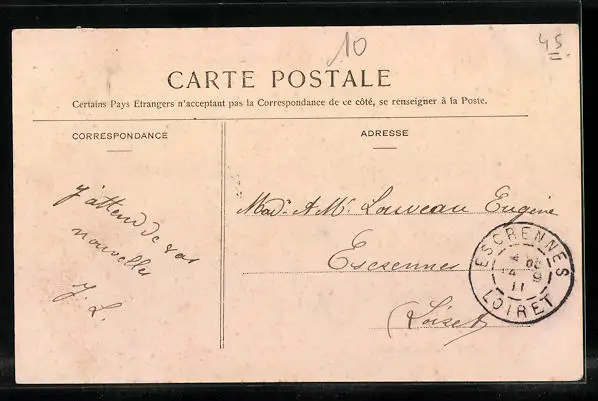 10
45
CARTE POSTALE
Certains Pays Etrangers n'acceptant pas la Correspondance de ce côté, se renseigner à la Poste.
CORRESPONDANCE
J'attend de vos
nouvelles
J. L.
ADRESSE
Mad. & Mr. Louveau Eugène
Escrennes
(Loiret)
ESCRENNES
LOIRET